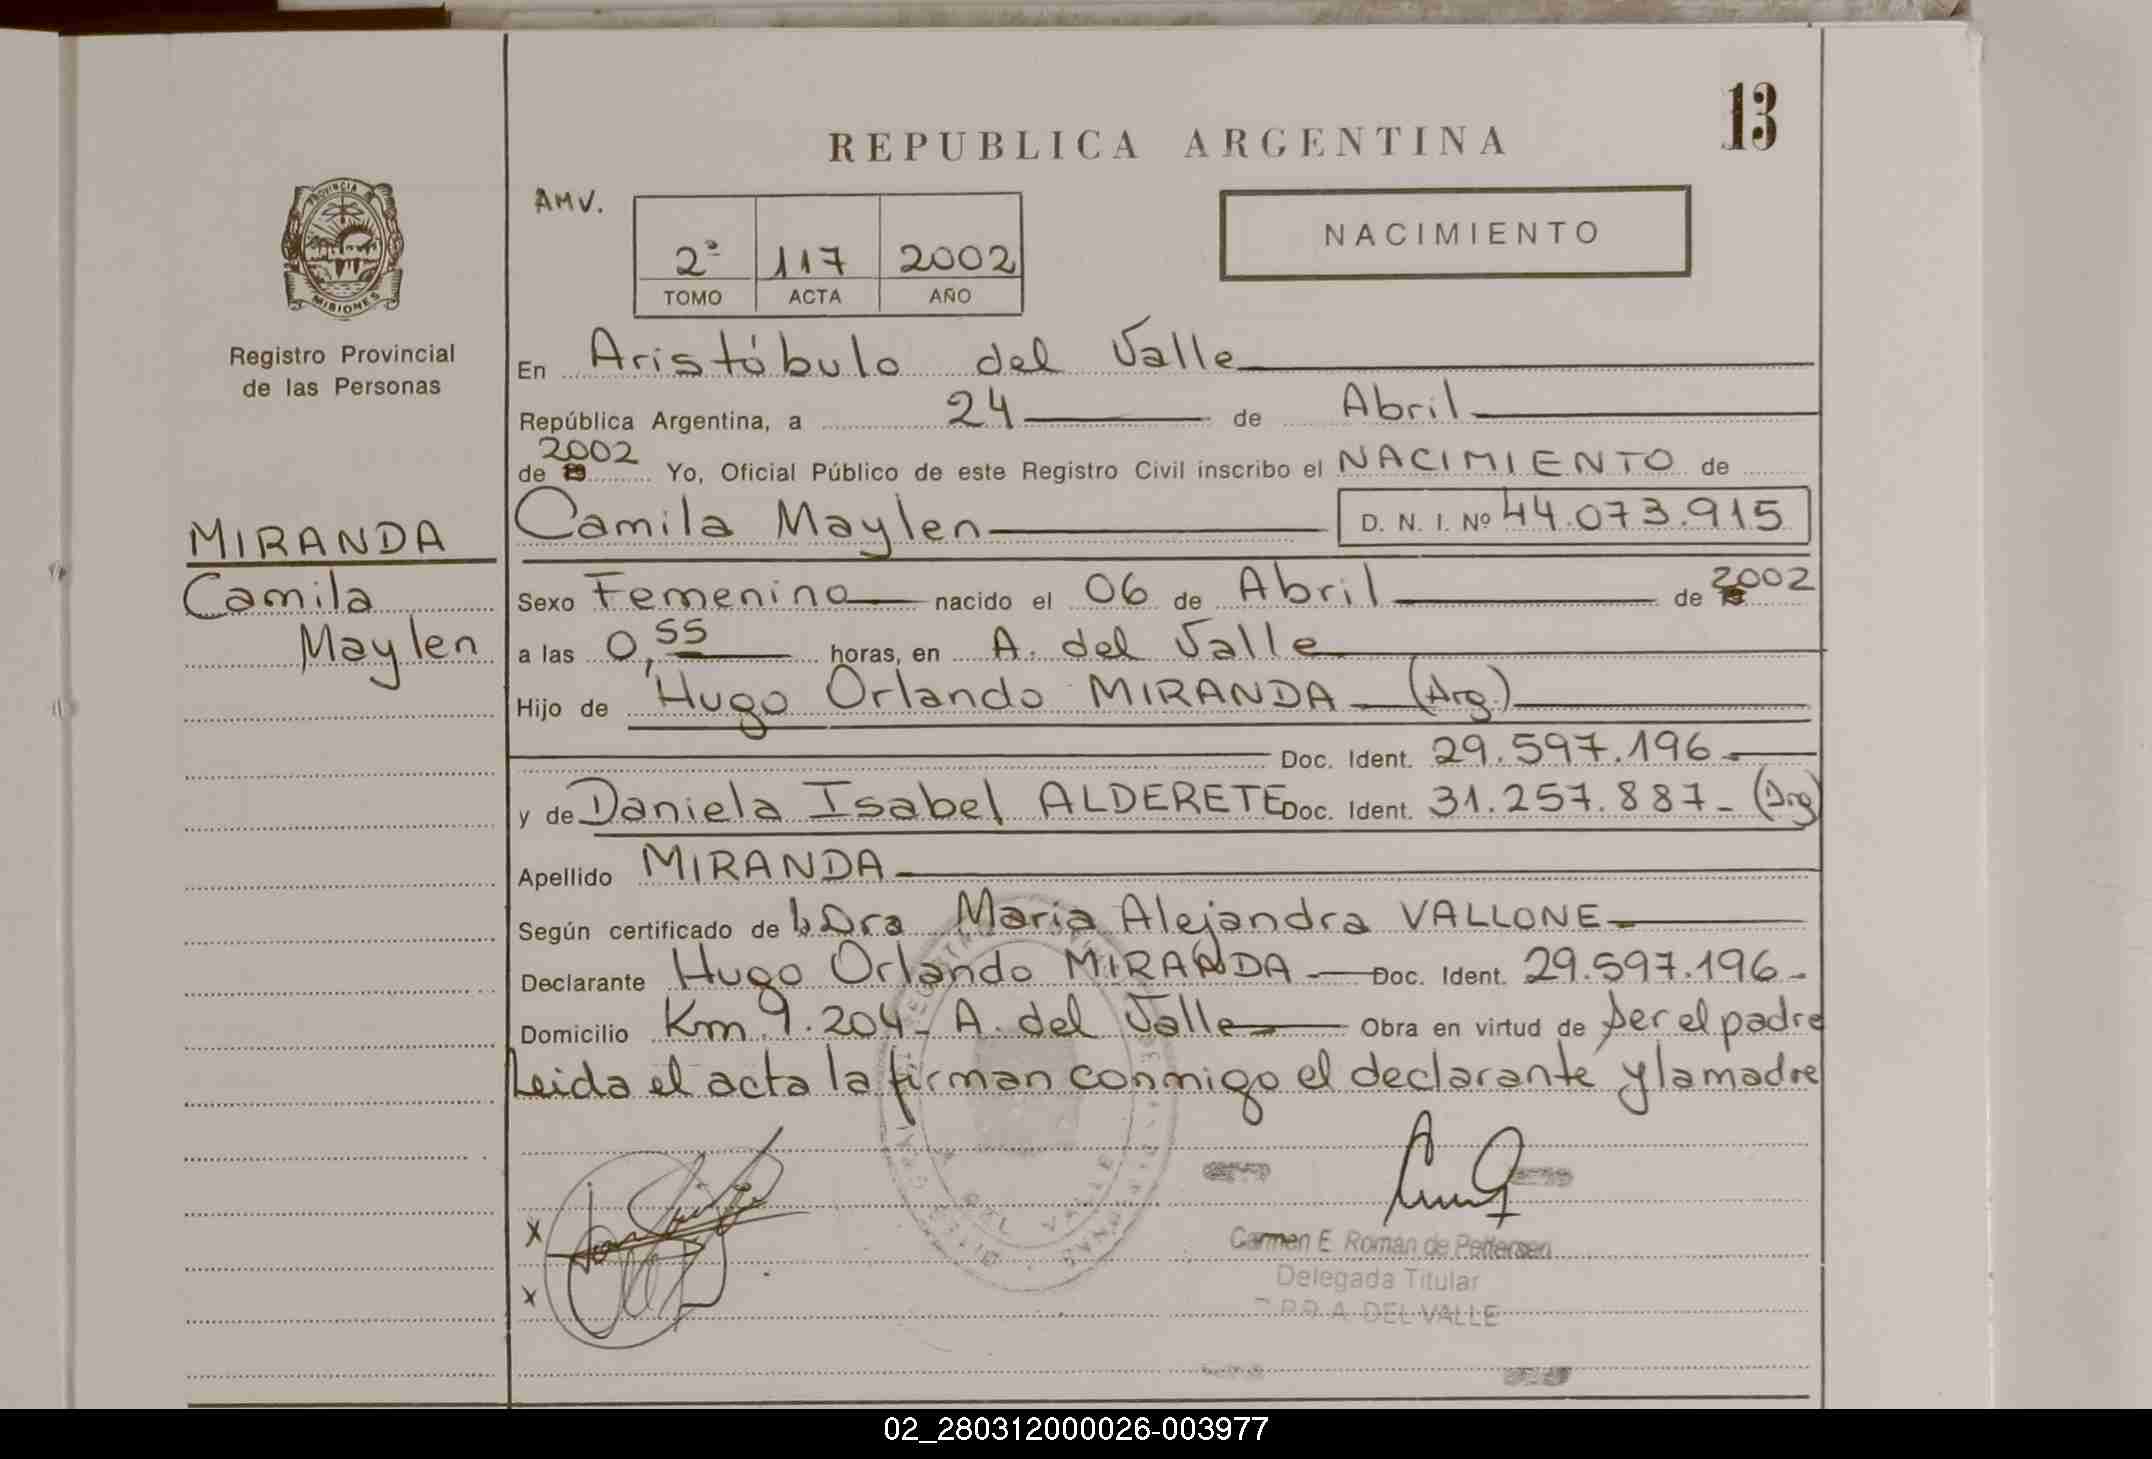 13
REPUBLICA ARGENTINA
PROVINCIA
MISIONES
Registro Provincial
de las Personas
AMV.
2º 117 2002
TOMO ACTA AÑO
NACIMIENTO
En Aristóbulo del Valle
República Argentina, a 24 de Abril
de 2002 Yo, Oficial Público de este Registro Civil inscribo el NACIMIENTO de
MIRANDA
Camila
Maylen
Camila Maylen D. N. I. Nº 44.073.915
Sexo Femenino nacido el 06 de Abril de 2002
a las 0,55 horas, en A. del Valle
Hijo de Hugo Orlando MIRANDA (Arg.)
Doc. Ident. 29.597.196
y de Daniela Isabel ALDERETE Doc. Ident. 31.257.887- (Arg)
Apellido MIRANDA
Según certificado de la Dra Maria Alejandra VALLONE
Declarante Hugo Orlando MIRANDA Doc. Ident. 29.597.196-
Domicilio Km 9.204- A. del Valle Obra en virtud de ser el padre
Leida el acta la firman conmigo el declarante y la madre
X
X
Carmen E. Roman de Pettersen
Delegada Titular
A. DEL VALLE
02_280312000026-003977